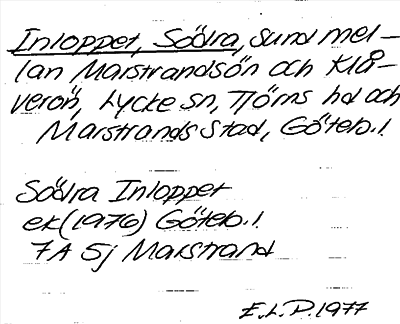 Inloppet, Södra, sund mel-
lan Marstrandsön och Klå-
verön, Lycke sn, Tjörns hd och
Marstrands stad, Göteb. l.
Södra Inloppet
ek (1976) Göteb. l.
7A 5j Marstrand
E. L. P. 1977